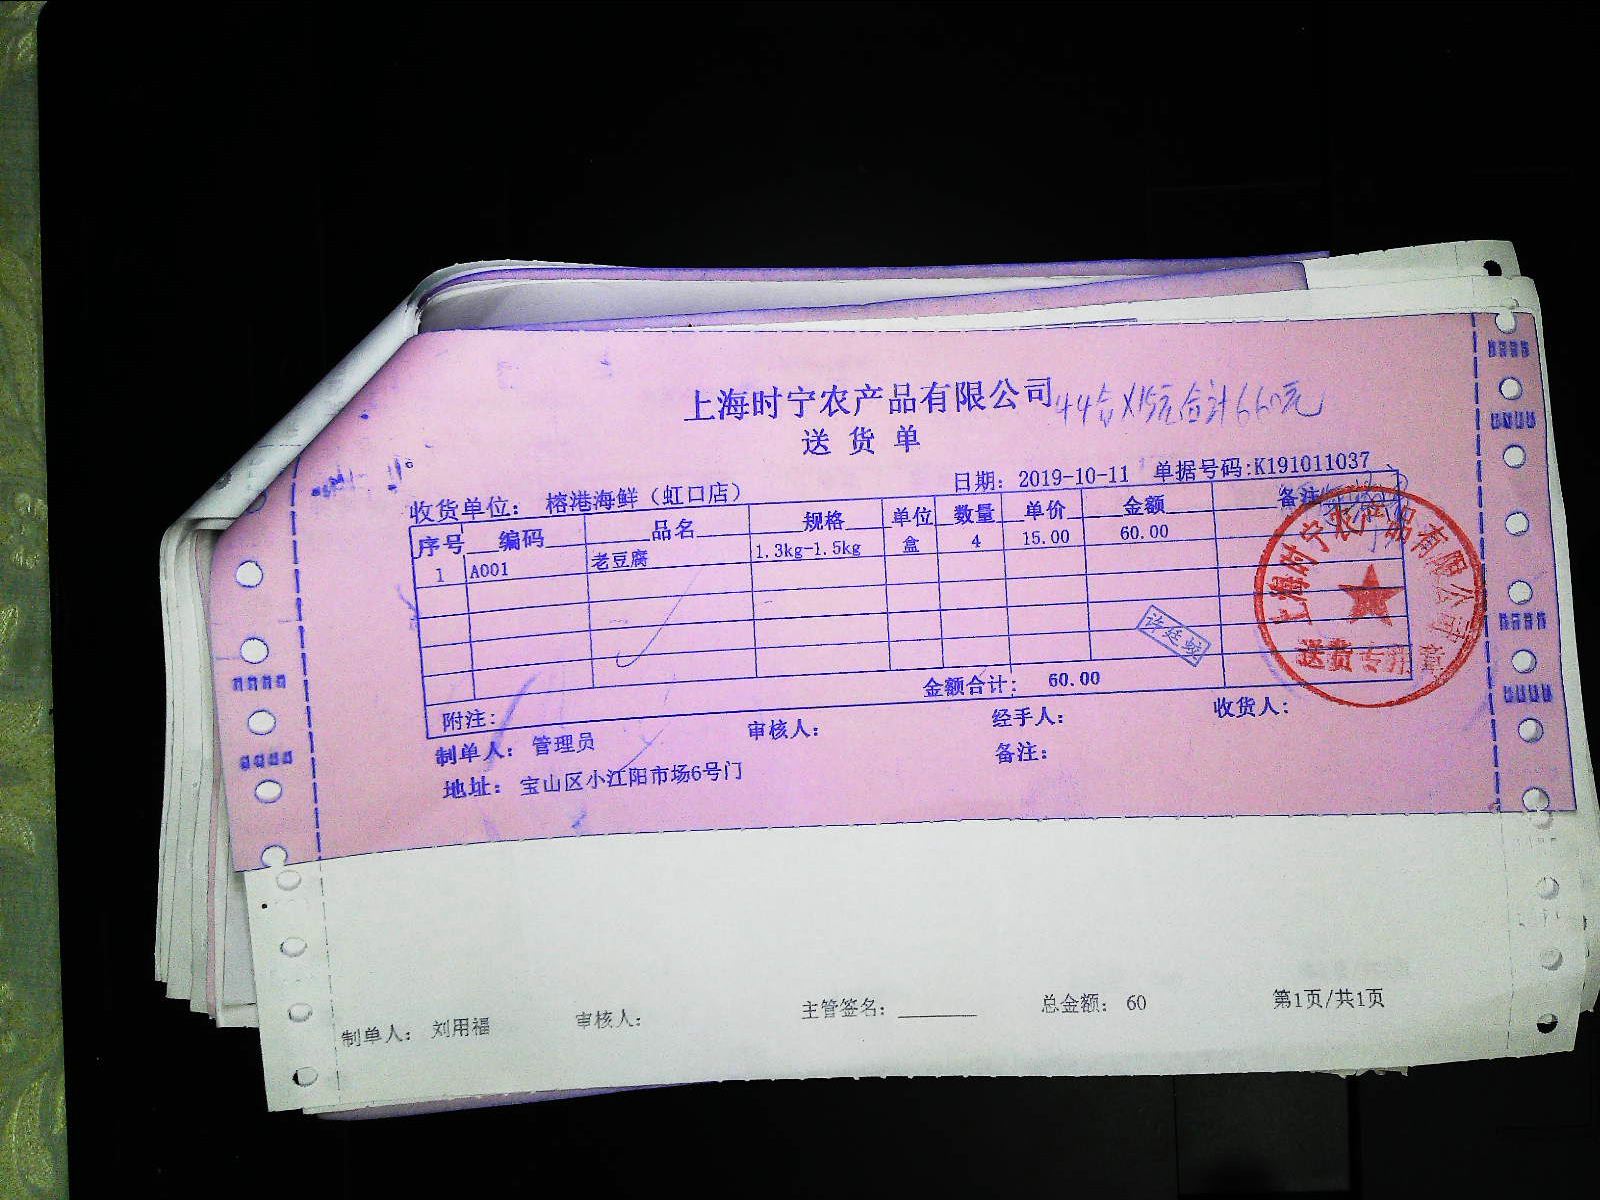 上海时宁农产品有限公司 44合X15元合计660元
送货单
收货单位： 榕港海鲜（虹口店） 日期：2019-10-11 单据号码:K191011037
序号 编码 品名 规格 单位 数量 单价 金额 备注
1 A001 老豆腐 1.3kg-1.5kg 盒 4 15.00 60.00
上海时宁农产品有限公司
送货专用章
许廷蛟
金额合计： 60.00
附注：
制单人： 管理员 审核人： 经手人： 收货人：
地址： 宝山区小江阳市场6号门 备注：
制单人： 刘用福 审核人： 主管签名： 总金额： 60 第1页/共1页